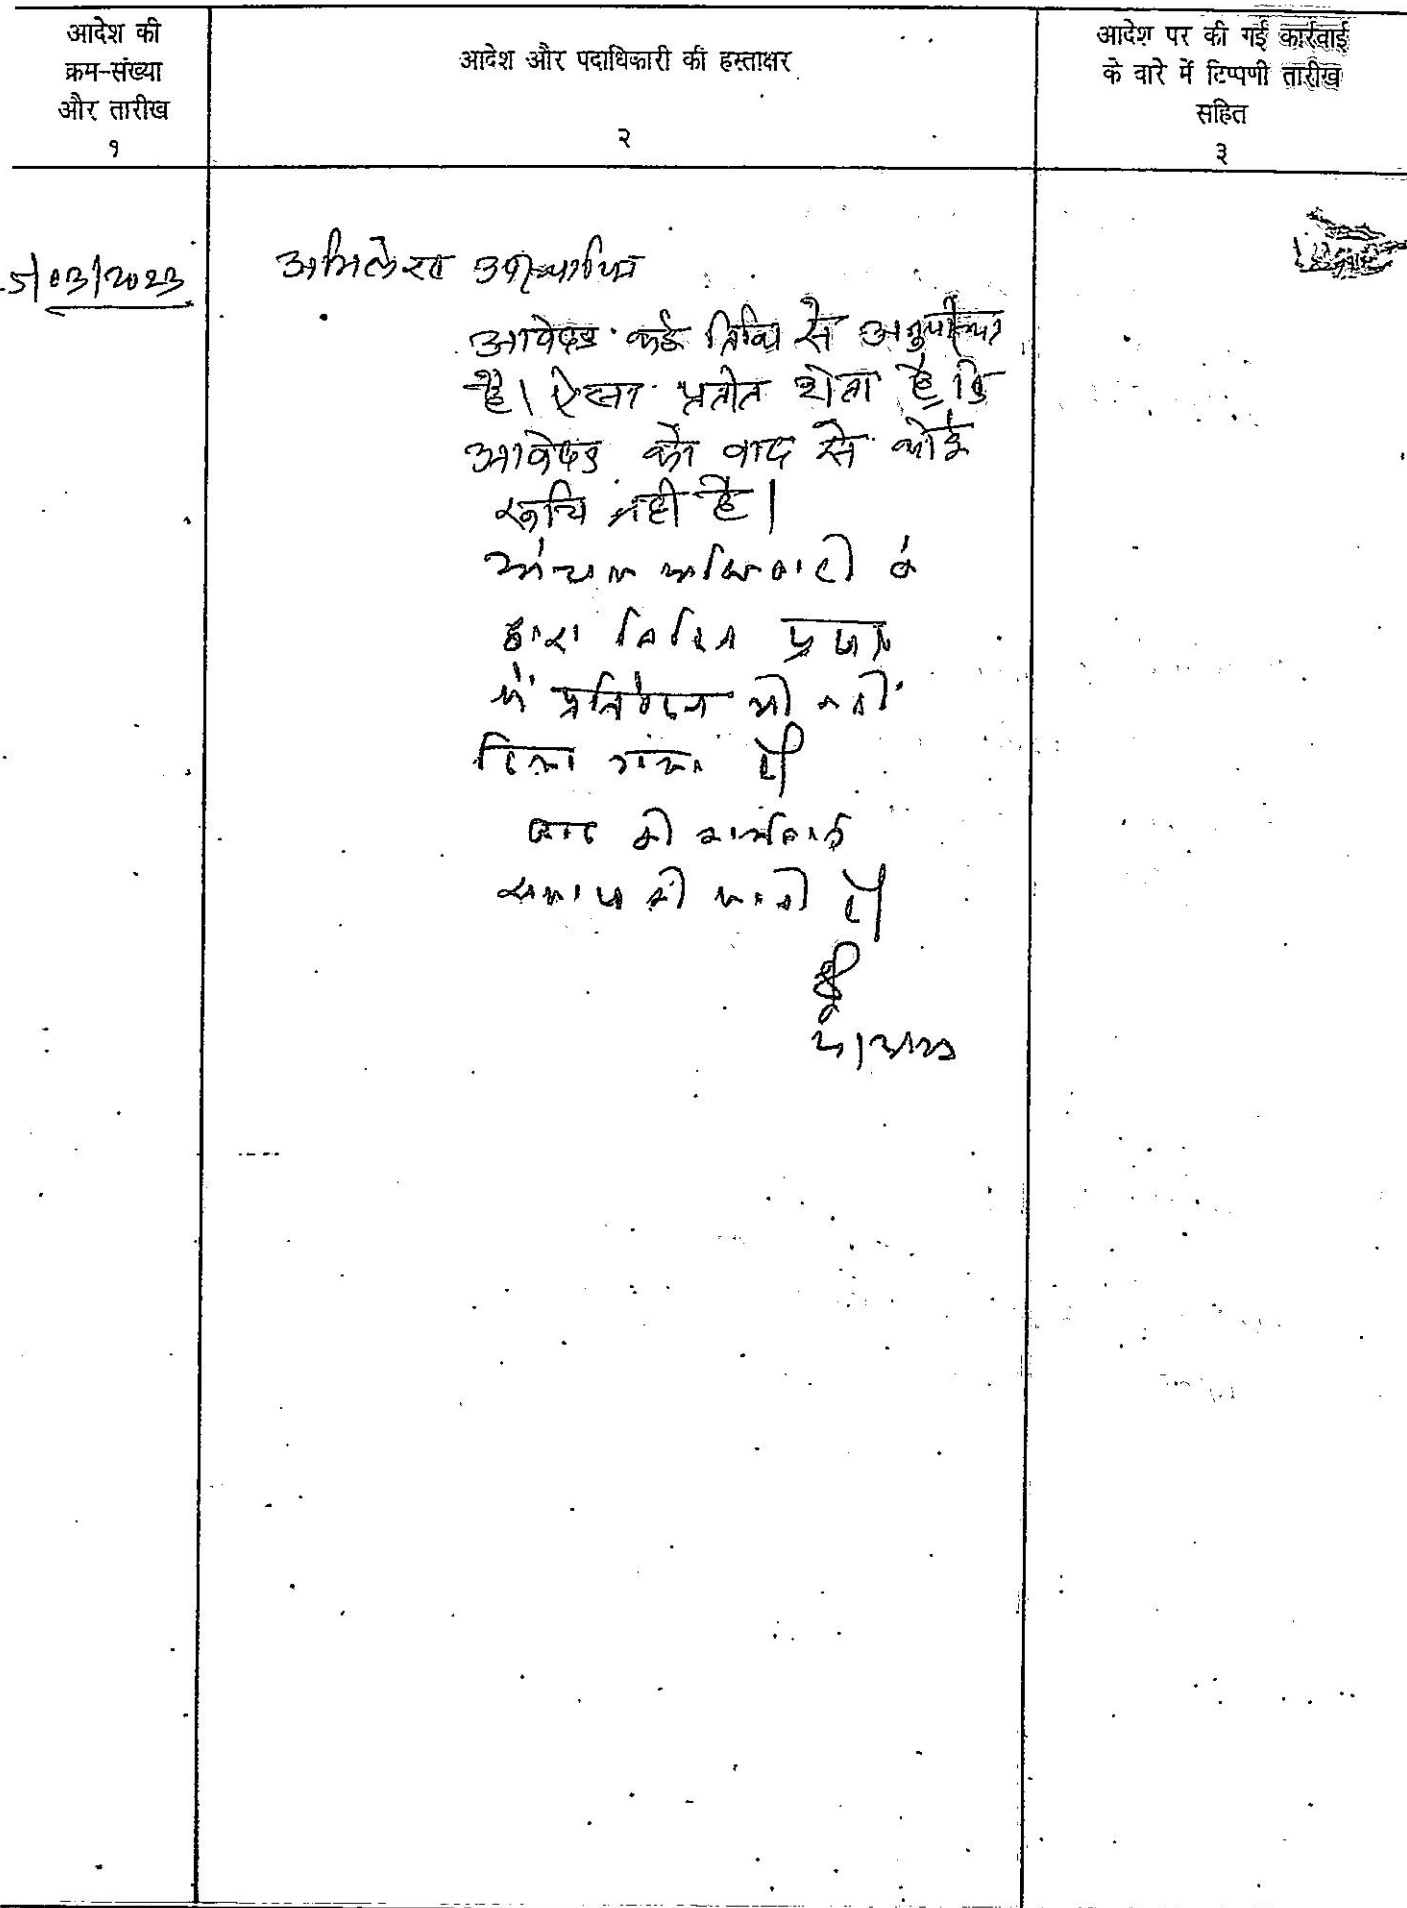 आदेश की
क्रम-संख्या
और तारीख
१
आदेश और पदाधिकारी की हस्ताक्षर
२
आदेश पर की गई कार्रवाई
के वारे में टिप्पणी तारीख
सहित
३
5/03/2023
अभिलेख उपस्थापित
आवेदक कई तिथि से अनुपस्थित
है। ऐसा प्रतीत होता है कि
आवेदक को वाद से कोई
रूचि नहीं है।
अंचल अधिकारी के
द्वारा विहित प्रपत्र
में प्रतिवेदन भी नहीं
दिया गया है।
वाद की कार्यवाही
समाप्त की जाती है।